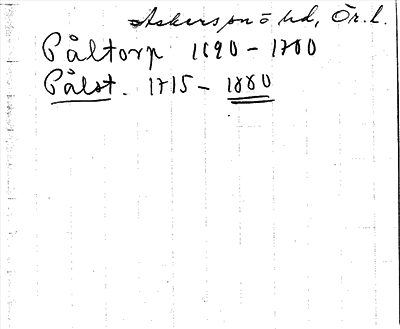 Askersund hd, Ör. l.
Påltorp 1690 - 1780
Pålst. 1715 - 1880